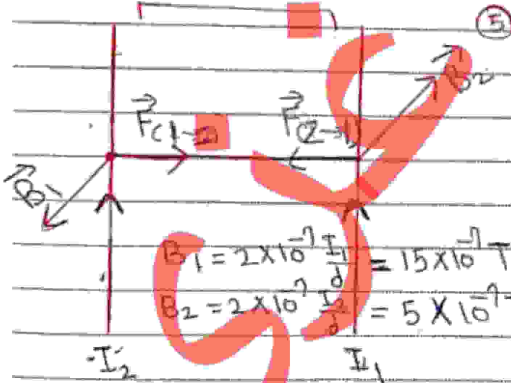 5
F(1→2) F(2→1) B2
B1
B1 = 2×10^-7 I1/d = 15×10^-7 T
B2 = 2×10^-7 I2/d = 5×10^-7
I2 I1